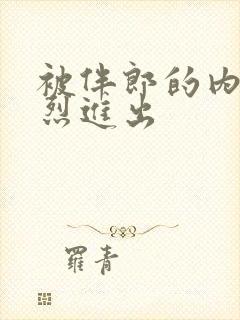 被伴郎的内
烈进出
羅青